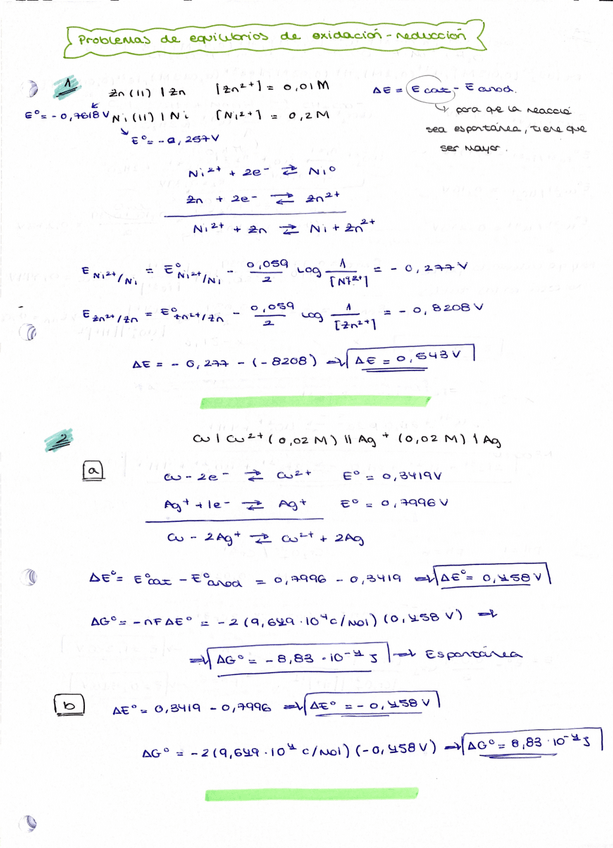 Problemas de equilibrios de oxidación-reducción
1 Zn(II) | Zn [Zn²⁺] = 0,01M ΔE = Ecat - Eanod.
E° = -0,7618V Ni(II) | Ni [Ni²⁺] = 0,2M para que la reacció
E° = -0,257V sea espontánea, tiene que
ser mayor.
Ni²⁺ + 2e⁻ ⇄ Ni⁰
Zn + 2e⁻ ⇄ Zn²⁺
Ni²⁺ + Zn ⇄ Ni + Zn²⁺
E Ni²⁺/Ni = E° Ni²⁺/Ni - 0,059/2 log 1/[Ni²⁺] = -0,277V
E Zn²⁺/Zn = E° Zn²⁺/Zn - 0,059/2 log 1/[Zn²⁺] = -0,8208V
ΔE = -0,277 - (-8208) → ΔE = 0,543V
2 Cu | Cu²⁺ (0,02M) || Ag⁺ (0,02M) | Ag
a Cu - 2e⁻ ⇄ Cu²⁺ E° = 0,3419V
Ag⁺ + 1e⁻ ⇄ Ag⁺ E° = 0,7996V
Cu - 2Ag⁺ ⇄ Cu²⁺ + 2Ag
ΔE° = E°cat - E°anod = 0,7996 - 0,3419 → ΔE° = 0,458V
ΔG° = -nFΔE° = -2(9,649·10⁴ C/mol)(0,458V) →
→ ΔG° = -8,83·10⁻⁴ J → Espontánea
b ΔE° = 0,3419 - 0,7996 → ΔE° = -0,458V
ΔG° = -2(9,649·10⁴ C/mol)(-0,458V) → ΔG° = 8,83·10⁻⁴ J